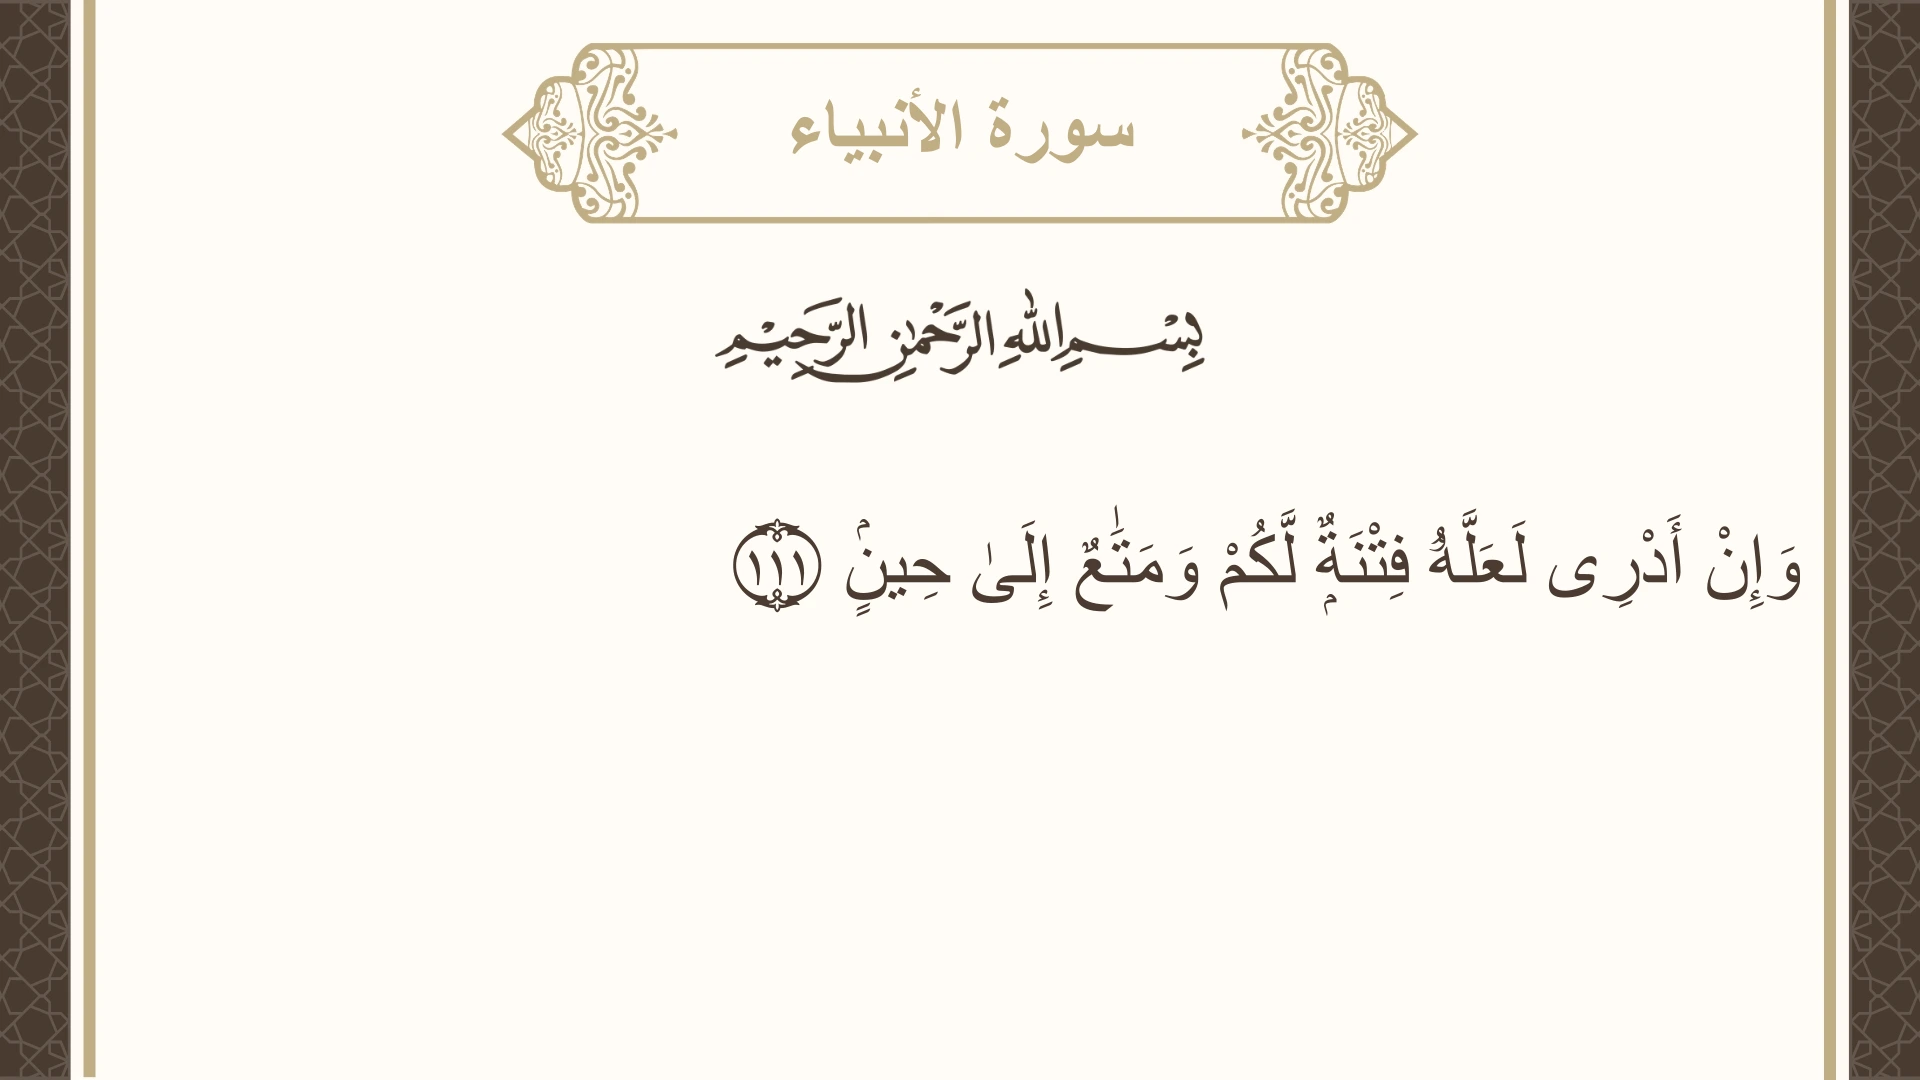 سورة الأنبياء
بِسْمِ اللهِ الرَّحْمٰنِ الرَّحِيْمِ
وَإِنْ أَدْرِى لَعَلَّهُۥ فِتْنَةٌۭ لَّكُمْ وَمَتَـٰعٌ إِلَىٰ حِينٍۢ ١١١